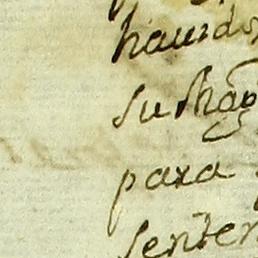 havido
su Mag
para
senten